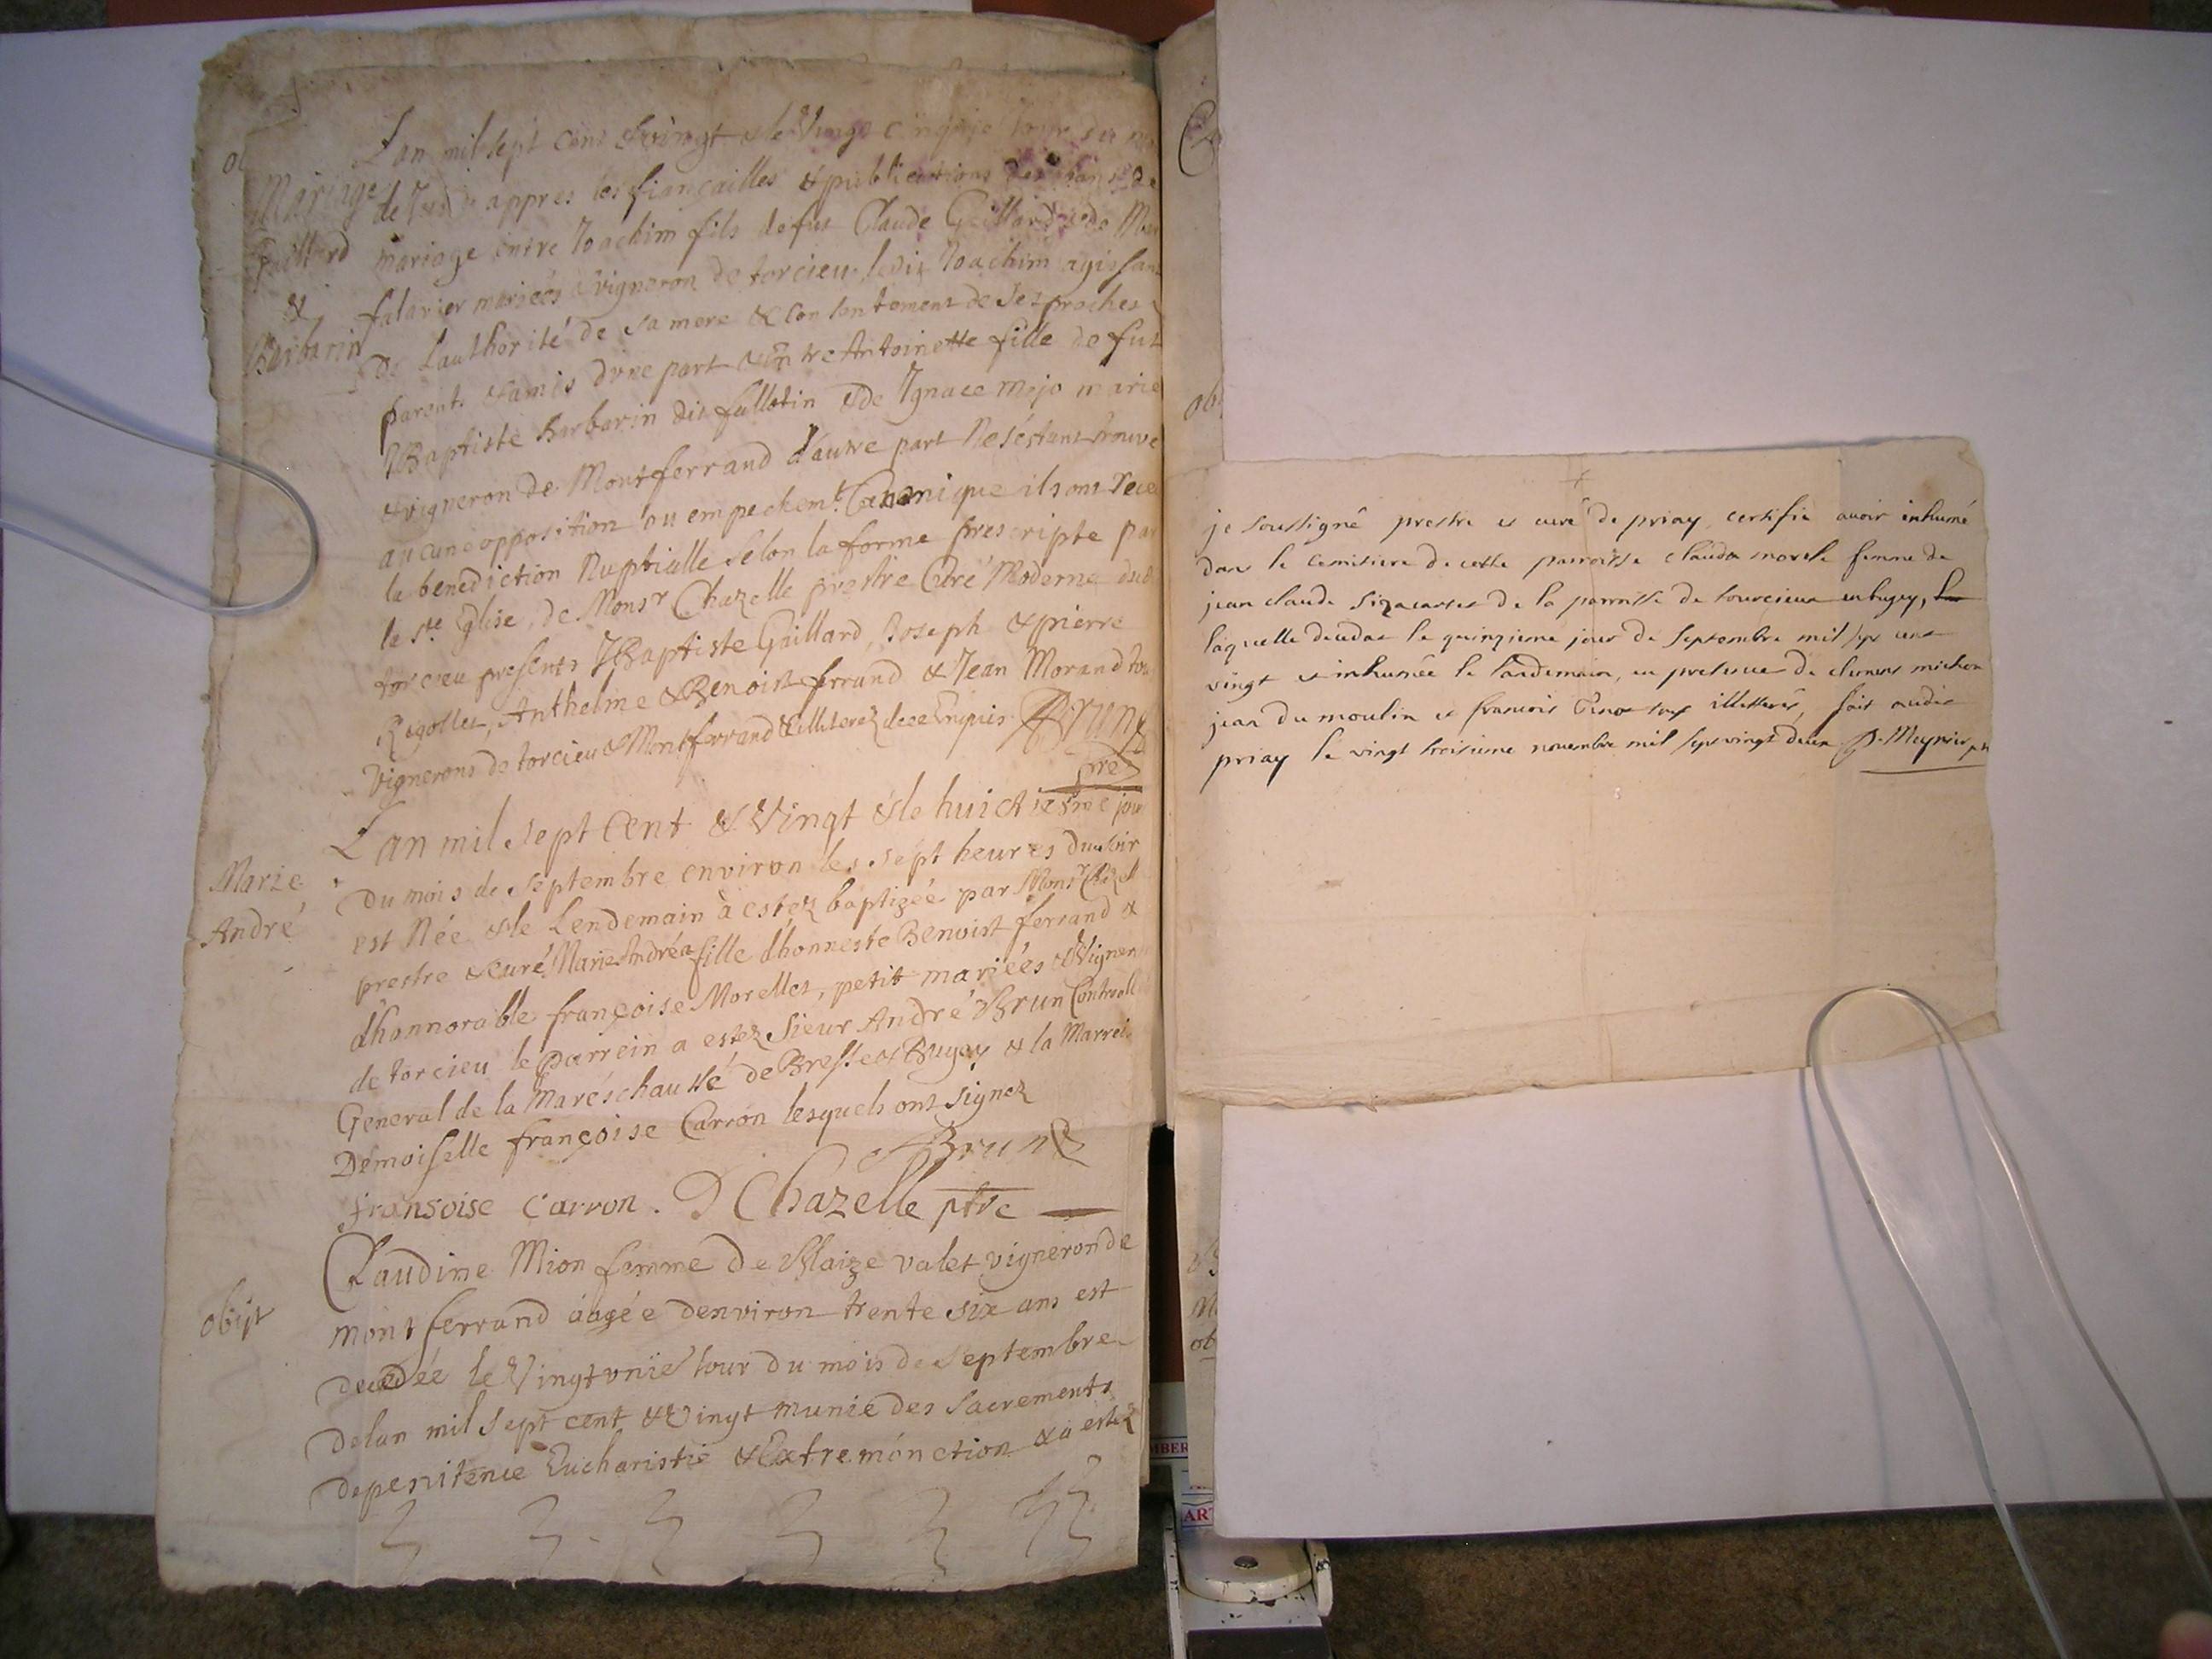 Lan mil sept cent & vingt & le Vingt cinquie Jour du
Mariage
Gaillard
&
Barbarin
de appres les fiancailles & publications des bans de
mariage entre Joachim fils de fut Claude Gaillard & de
falavier mariees & vigneron de torcieu, ledit Joachim agissant
De Lauthorité de sa mere & consentement de Ses proches
parents & amis dune part & Entre Antoinette fille de fut
JBaptiste Barbarin dit fullotin & de Ignace mojo marie
& vigneron de Montferrand d'autre part Ne sestant trouve
aucune opposition ou empechemt. Canonique ils ont rece
la benediction Nuptialle Selon la forme prescripte par
le Ste Eglise, de Monsr Chazelle prestre Curé Moderne dud
torcieu presents JBaptiste Gaillard, Joseph & pierre
Rigollet, Anthelme & Benoist ferrand & Jean Morand
Vignerons de torcieu & Montferrand & illiterez de ce Enquis Brun
pre
Marie
André
Lan mil sept Cent & Vingt & le huictiesme jour
Du mois de Septembre environ les sept heures du soir
est Née & le Lendemain à estez baptizée par Monsr
prestre & curé Marie Andréa fille dhonneste Benoist ferrand &
dhonnorable françoise Morellet, petit mariées & Vigneron
de torcieu le parrein a estez Sieur André Brun
General de la Maréschaussé de Bresse & Bugey & la
Demoiselle françoise Carron lesquels ont signez
Brun
fransoise carron. D Chazelle ptre
obijt
Claudine Mion femme de Blaize valet vigneron de
montferrand áagée denviron trente six ans est
decedée le Vingt unie Jour du mois de Septembre
delan mil sept cent & Vingt munie des Sacrements
de penitence Eucharistie & Extremónction & a estez
je soussigné prestre et curé de priay certifie avoir inhumé
dans le cemitiere de cette parroisse clauda morele femme de
jean claude de la parroisse de tourcieux en bugey,
laquelle deceda le quinzieme jour de Septembre mil sept cent
vingt et inhumée le landemain, en presence de clement michon
jean du moulin et francois tous illetteres, fait audit
priay le vingt troisieme novembre mil sept vingt deux P. Meynier